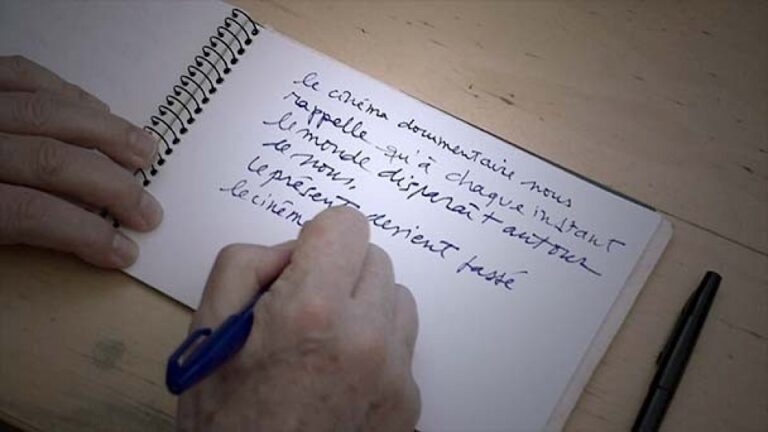 le cinéma documentaire nous
rappelle qu'à chaque instant
le monde disparaît autour
de nous,
le présent devient passé
le ciném